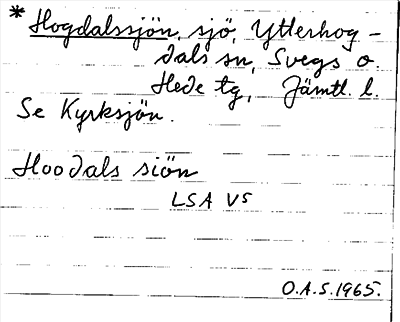 * Hogdalssjön, sjö, Ytterhog-
dals sn, Svegs o.
Hede tg, Jämtl. l.
Se Kyrksjön.
Hoodals siön
LSA V5
O.A.S. 1965.